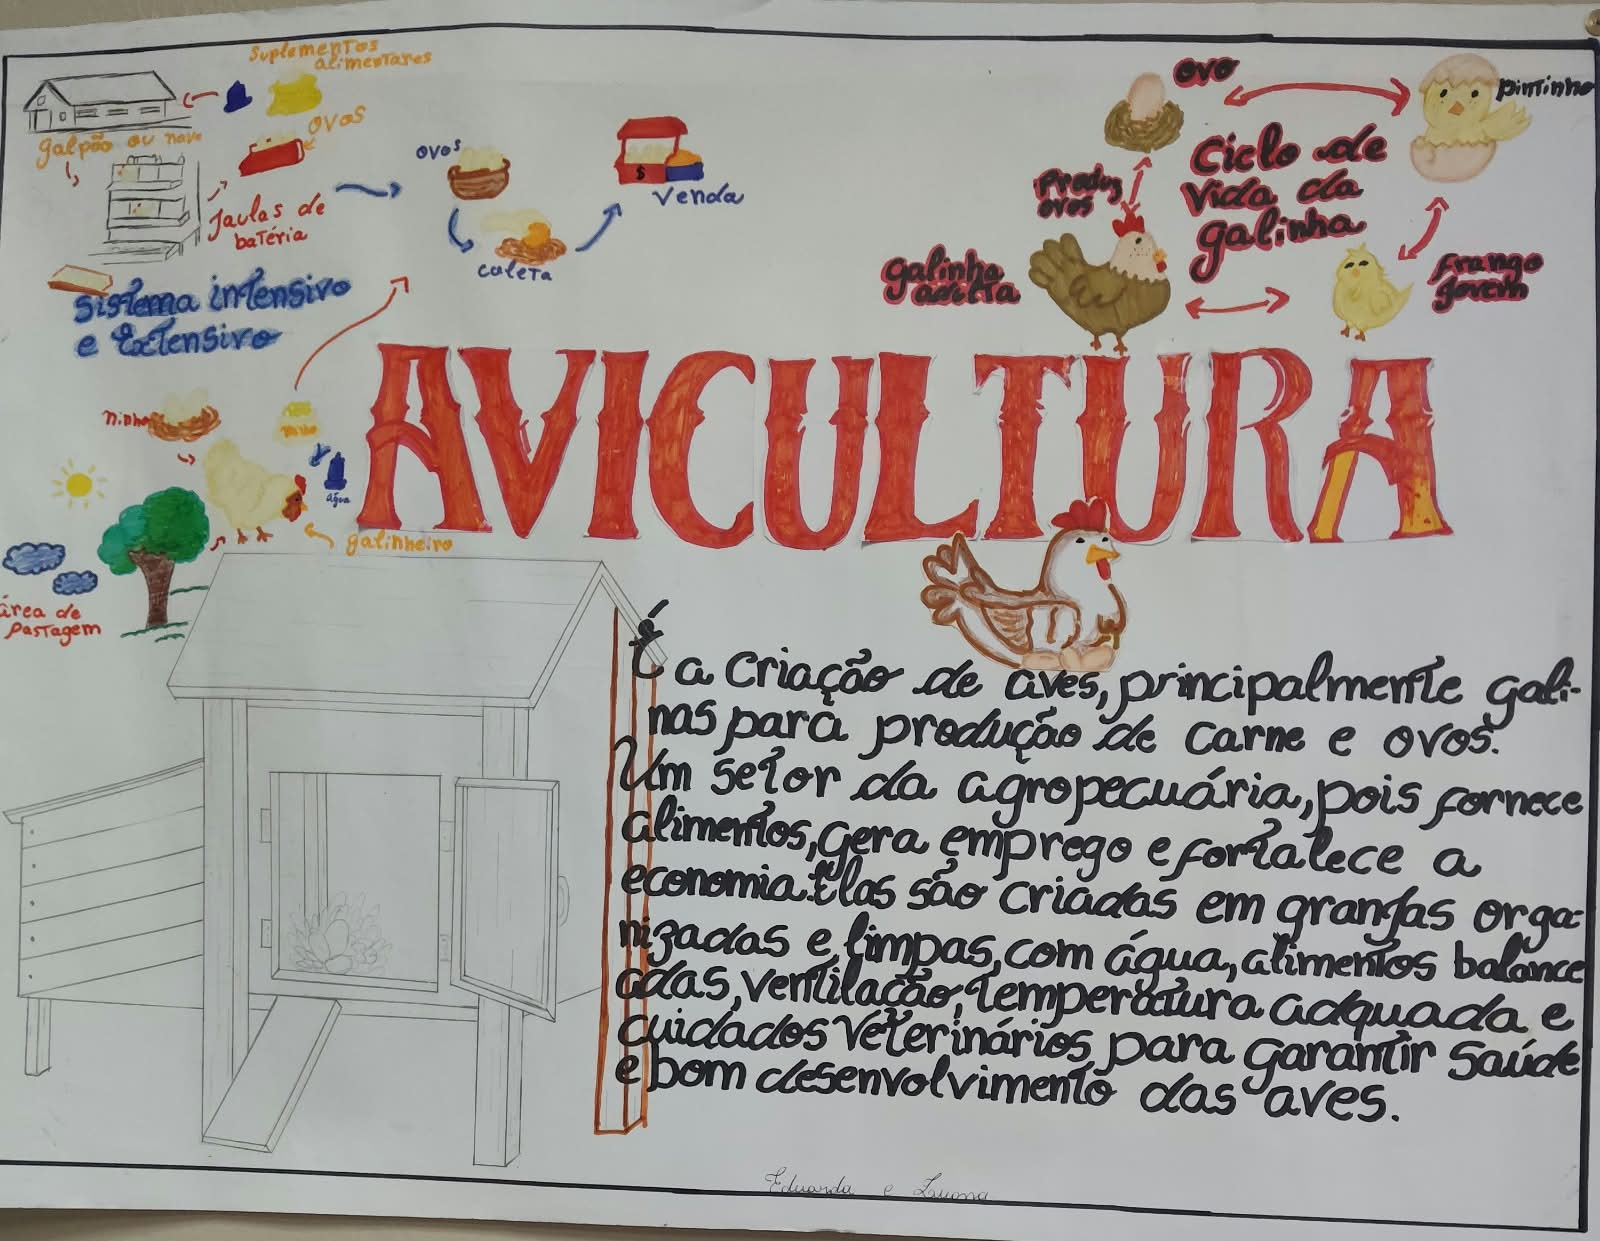 suplementos
alimentares
galpão ou nave
ovos
Jaulas de
batéria
ovos
coleta
venda
sistema intensivo
e Extensivo
ninho
milho
água
galinheiro
área de
pastagem
ovo
pintinho
Ciclo de
vida da
galinha
Produz
ovos
galinha
adulta
frango
jovem
AVICULTURA
É a criação de aves, principalmente gali-
nas para produção de carne e ovos.
Um setor da agropecuária, pois fornece
alimentos, gera emprego e fortalece a
economia. Elas são criadas em granjas orga-
nizadas e limpas, com água, alimentos balance
adas, ventilação, temperatura adquada e
cuidados veterinários, para garantir saúde
e bom desenvolvimento das aves.
Eduarda e Luana